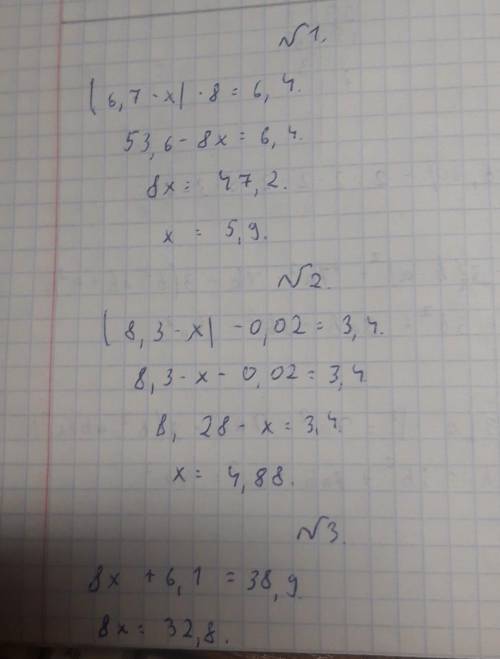 №1.
(6,7 - x) · 8 = 6,4.
53,6 - 8x = 6,4.
8x = 47,2.
x = 5,9.
№2.
(8,3 - x) - 0,02 = 3,4.
8,3 - x - 0,02 = 3,4
8,28 - x = 3,4.
x = 4,88.
№3.
8x + 6,1 = 38,9
8x = 32,8.